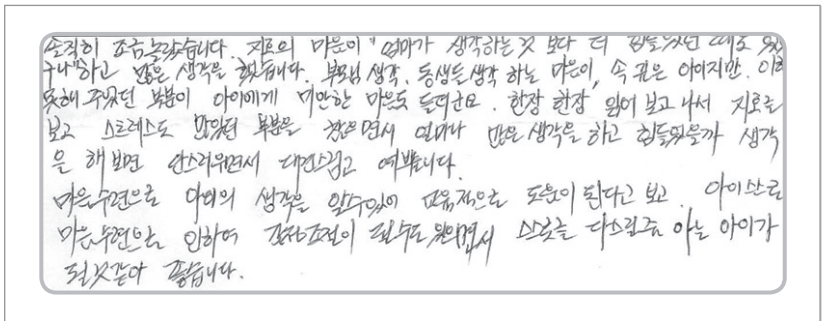 솔직히 조금 놀랐습니다. 지료의 마음이 "엄마가 생각하는것 보다 더 힘들었던 때도 있
구나"하고 많은 생각을 했습니다. 부모님 생각. 동생들 생각 하는 마음이, 속 깊은 아이지만. 이해
못해 주었던 부분이 아이에게 미안한 마음도 들더군요. 한장 한장 읽어 보고 나서 지료를
보고 스트레스도 많았던 부분을 참으면서 얼마나 많은 생각을 하고 힘들었을까 생각
을 해보면 안스러우면서 대견스럽고 예쁩니다.
마음수련으로 아이의 생각을 알수있어 교육적으로 도움이 된다고 보고. 아이 스스로
마음수련으로 인하여 감정조절이 될수도 있으면서 스스로를 다스릴줄 아는 아이가
될것같아 좋습니다.